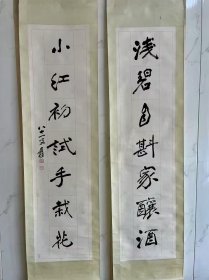 浅碧自斟家釀酒
小红初試手栽花